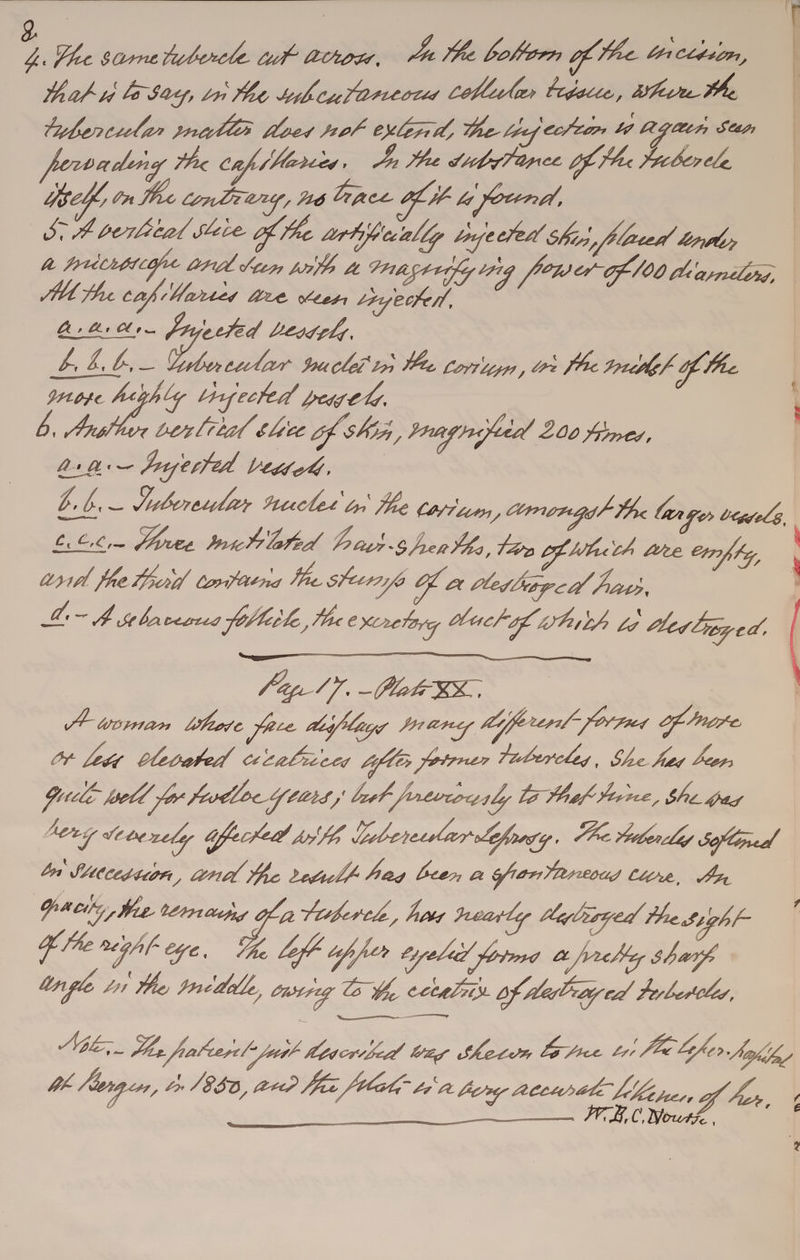 8
4. The same tubercle cut across. In the bottom of the incision,
that is to say, in the subcutaneous cellular tissue, where the
tubercular matter does not extend, the injection is again seen
pervading the capillaries. In the substance of the tubercle
itself, on the contrary, no trace of it is found.
5. A vertical slice of the artificially injected skin, placed under
a microscope and seen with a magnifying power of 100 diameters.
All the capillaries are seen injected.
a. a. a. - Injected vessels.
b. b. b. - Tubercular nuclei in the corium, in the midst of the
more highly injected vessels.
6. Another vertical slice of skin, magnified 200 times.
a. a. - Injected vessels.
b. b. - Tubercular nuclei in the corium, amongst the larger vessels.
c. c. c. - Three mutilated hair-sheaths, two of which are empty,
and the third contains the stump of a destroyed hair.
d. - A sebaceous follicle, the excretory duct of which is destroyed.
Page 17. - Plate XX.
A woman whose face displays many different forms of more
or less elevated cicatrices after former tubercles. She has been
quite well for twelve years; but previously to that time, she was
very severely affected with Tubercular Leprosy. The tubercles softened
in succession, and the result has been a spontaneous cure. An
opacity, the remains of a tubercle, has nearly destroyed the sight
of the right eye. The left upper eyelid forms a pretty sharp
angle in the middle, owing to the cicatrix of destroyed tubercles.
Note. - The patient just described was shewn to me in the leper-hospital
at Bergen, in 1850, and the plate is a very accurate likeness of her.
W. B. C. Nourse.